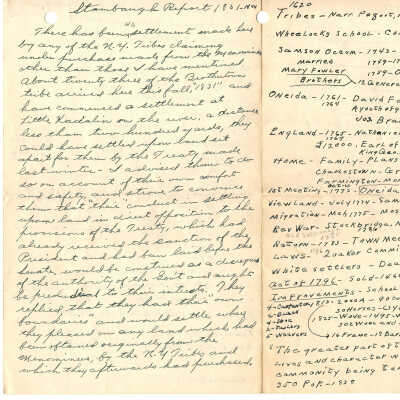 Stambaugh Report 1831-Nov
There has been no settlement made here
by any of the N.Y. Tribes claiming
under purchase made from the Menominees
other than those I have mentioned.
About twenty three of the Brothertown
tribe arrived here this fall, "1831" and
have commenced a settlement at
Little Kackalin on the river, a distance
less than two hundred yards, they
could have settled upon land set
apart for them by the Treaty made
last winter. I advised them to do
so on account of their own comfort
and safety and strove to convince
them that "their" conduct in settling
upon land in direct opposition to the
provisions of the Treaty, which had
already received the sanction of the
President and had been laid before the
Senate, would be construed as a disregard
of the authority of the Govt and might
be prejudicial to their interests. They
replied that they had their "own
boundaries" and would settle where
they pleased on any land which had
been obtained originally from the
Menominees, by the N.Y Tribes and
which they afterwards had purchased.
1620
Tribes - Narr. Pequot,
Wheelocks School - Co
Samson Occom - 1743 -
Married
Mary Fowler
Brothers
Oneida - 1761 - David F
England - 1765 - Nathaniel
£12000. Earl of
King Geo.
Home - Family - Plans
Charlestown - Gr
Farmington - Mo
1st Meeting - 1773 - Oneida
View land - July 1774 - Sam
Migration - Mch 1775 - Mos
Rev War - Stockbridge, M
Return - 1783 - Town Mee
Laws - 2 Quaker Commi
White Settlers - Dea
Act of 1796 - Sold - 146
Improvements - School
"The greater part of t
lives and character w
community being te
350 Pop. - 1828